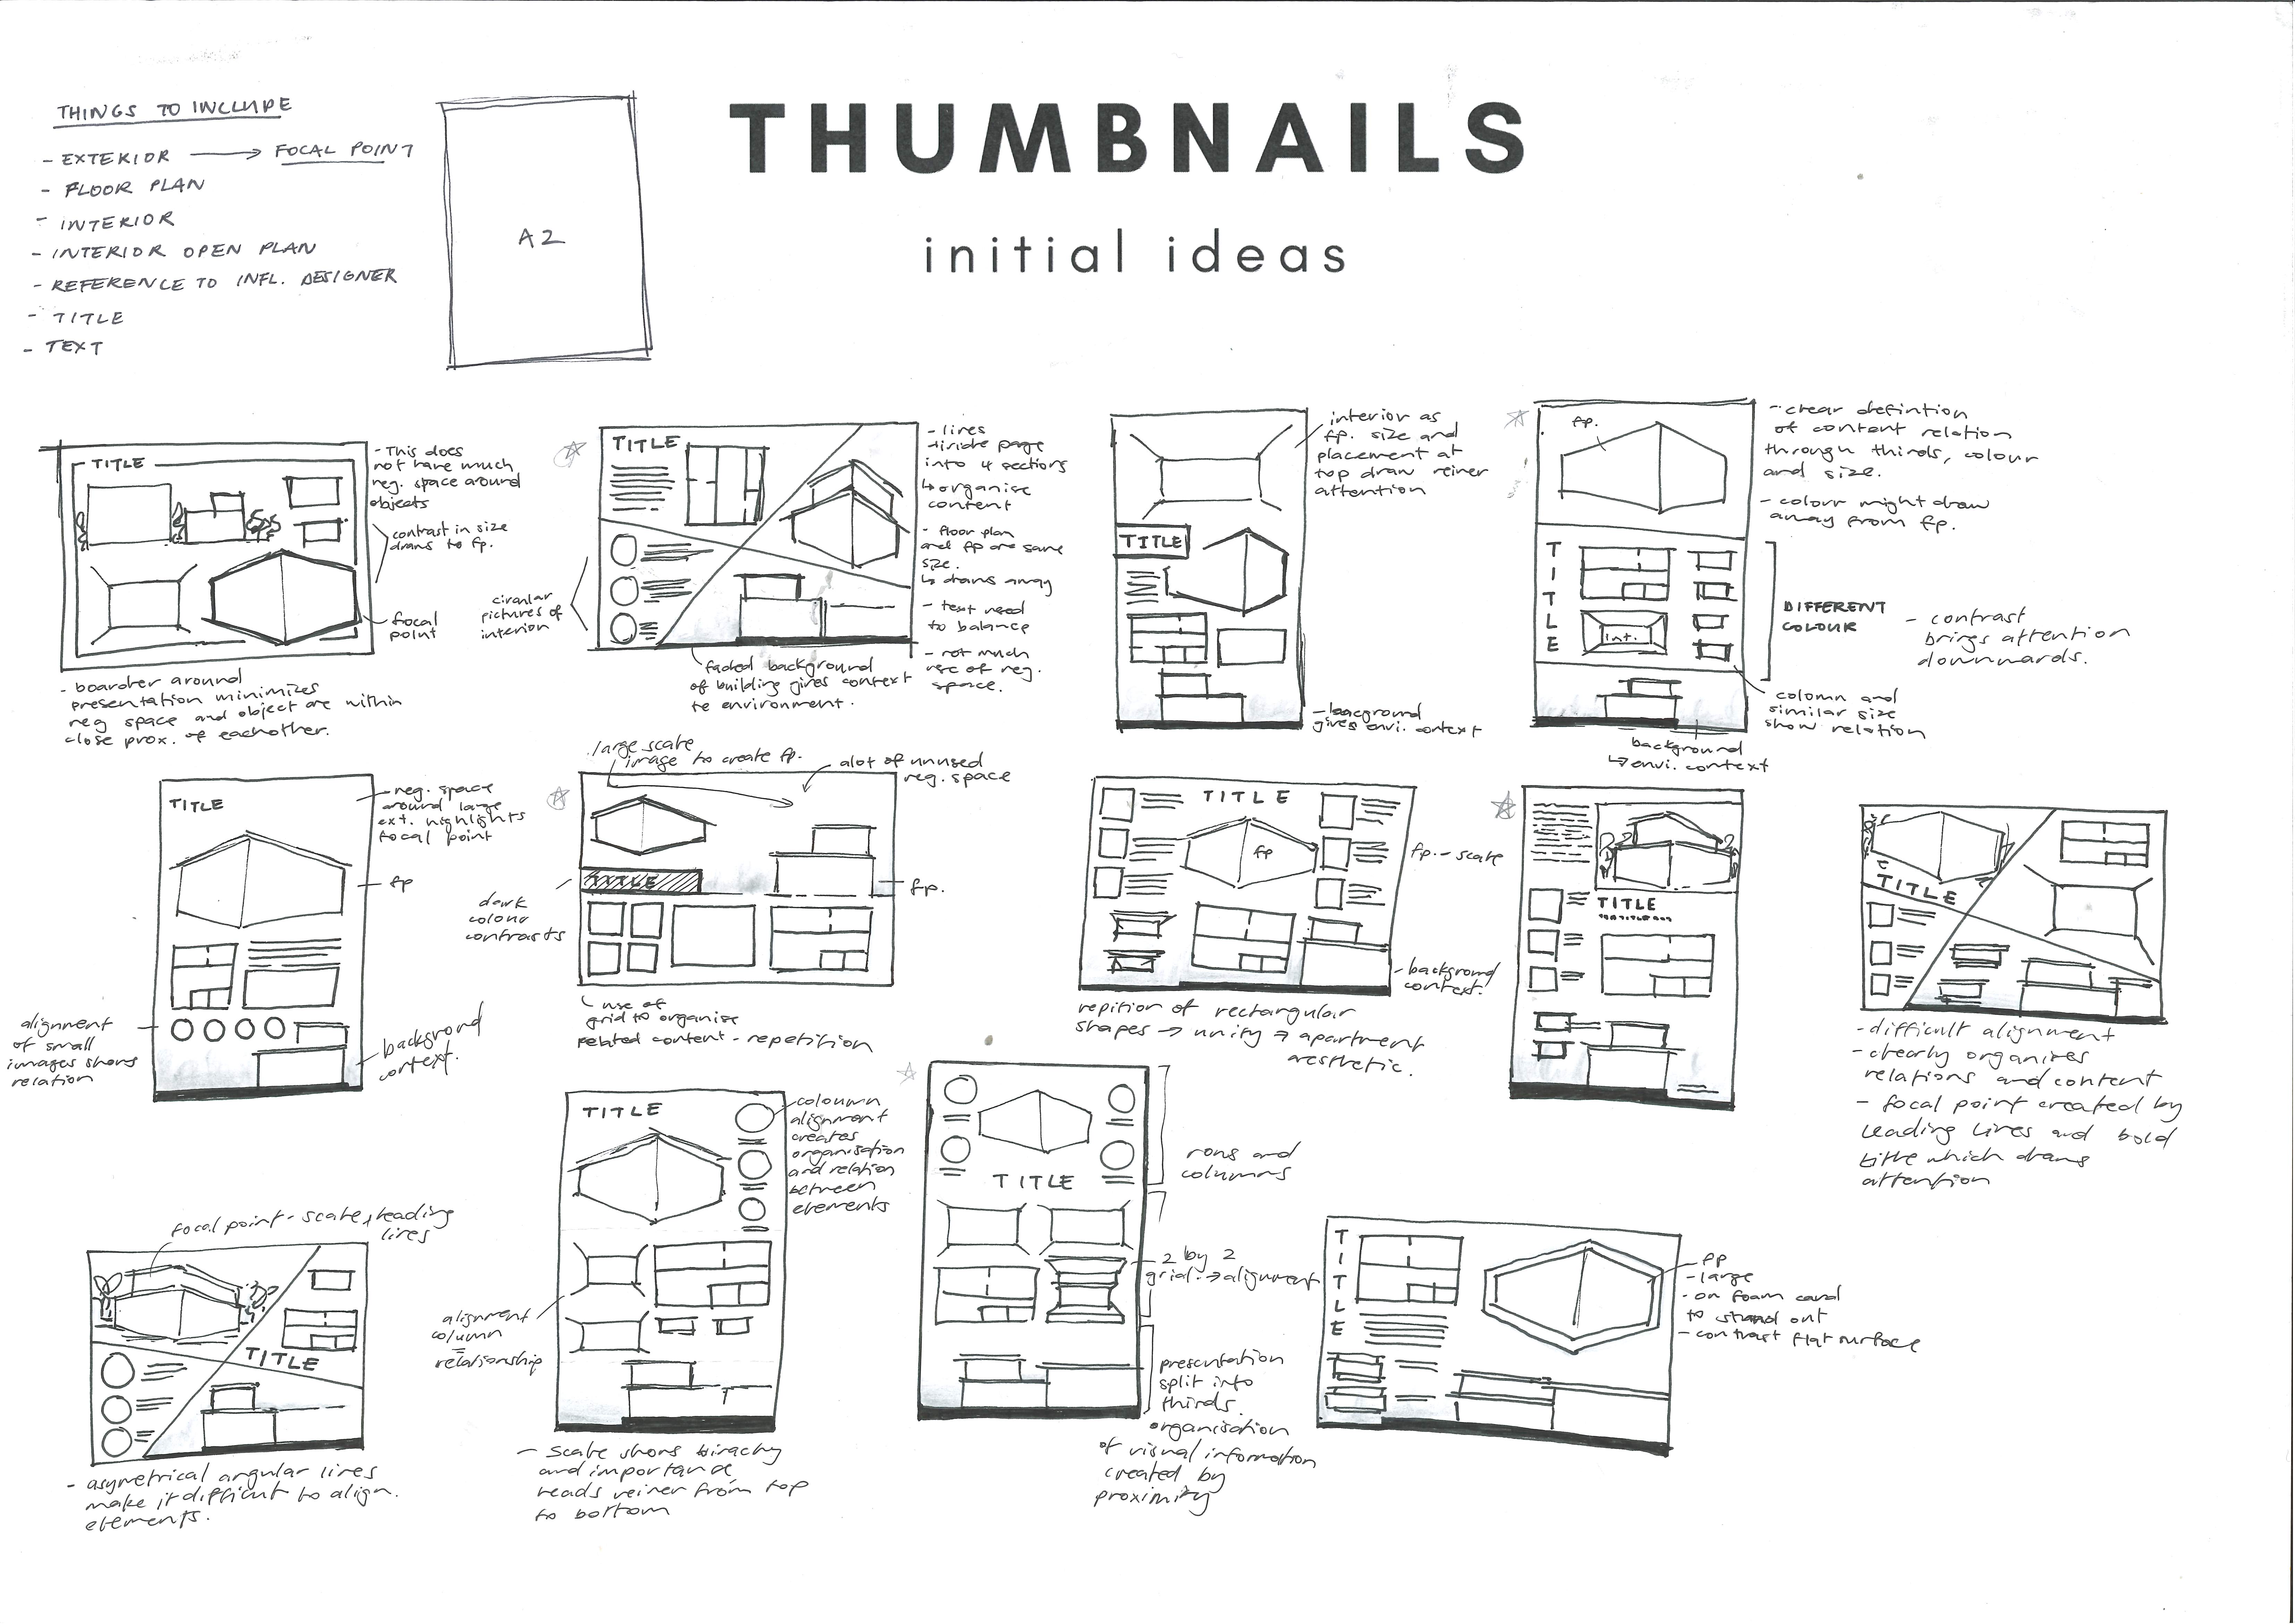 THUMBNAILS
initial ideas
THINGS TO INCLUDE
- EXTERIOR → FOCAL POINT
- FLOOR PLAN
- INTERIOR
- INTERIOR OPEN PLAN
- REFERENCE TO INFL. DESIGNER
- TITLE
- TEXT
A2
TITLE
- This does
not have much
neg. space around
objects
contrast in size
draws to fp.
focal
point
- boarder around
presentation minimizes
neg space and object are within
close prox. of eachother.
TITLE
circular
pictures of
interior
- lines
divide page
into 4 sections
↳ organise
content
- floor plan
and fp are same
size.
↳ draws away
- text need
to balance
- not much
use of neg.
space.
faded background
of building gives context
to environment.
TITLE
interior as
fp. size and
placement at
top draw veiner
attention
- bacground
gives envi. context
fp.
TITLE
int.
- clear defintion
of content relation
through thirds, colour
and size.
- colour might draw
away from fp.
DIFFERENT
COLOUR
- contrast
brings attention
downwards.
column and
similar size
show relation
background
↳ envi. context
TITLE
neg. space
around large
ext. highlights
focal point
fp
alignment
of small
images shows
relation
background
context.
large scale
image to create fp.
alot of unused
neg. space
TITLE
dark
colour
contrasts
fp.
use of
grid to organise
related content - repetition
TITLE
fp
fp. - scale
- background
context.
repition of rectangular
shapes → unity → apartment
aesthetic.
TITLE
TITLE
- difficult alignment
- clearly organises
relations and content
- focal point created by
leading lines and bold
title which draws
attention
focal point - scale, leading
lines
TITLE
- asymetrical angular lines
make it difficult to align.
elements.
TITLE
coloumn
alignment
creates
organisation
and relation
between
elements
alignment
column
=
relationship
- scale shows hirachy
and importance
reads veiner from top
to bottom
TITLE
rows and
columns
2 by 2
grid. → alignment
presentation
split into
thirds.
organisation
of visual information
created by
proximity
TITLE
fp
- large
- on foam card
to stand out
- contrast flat surface